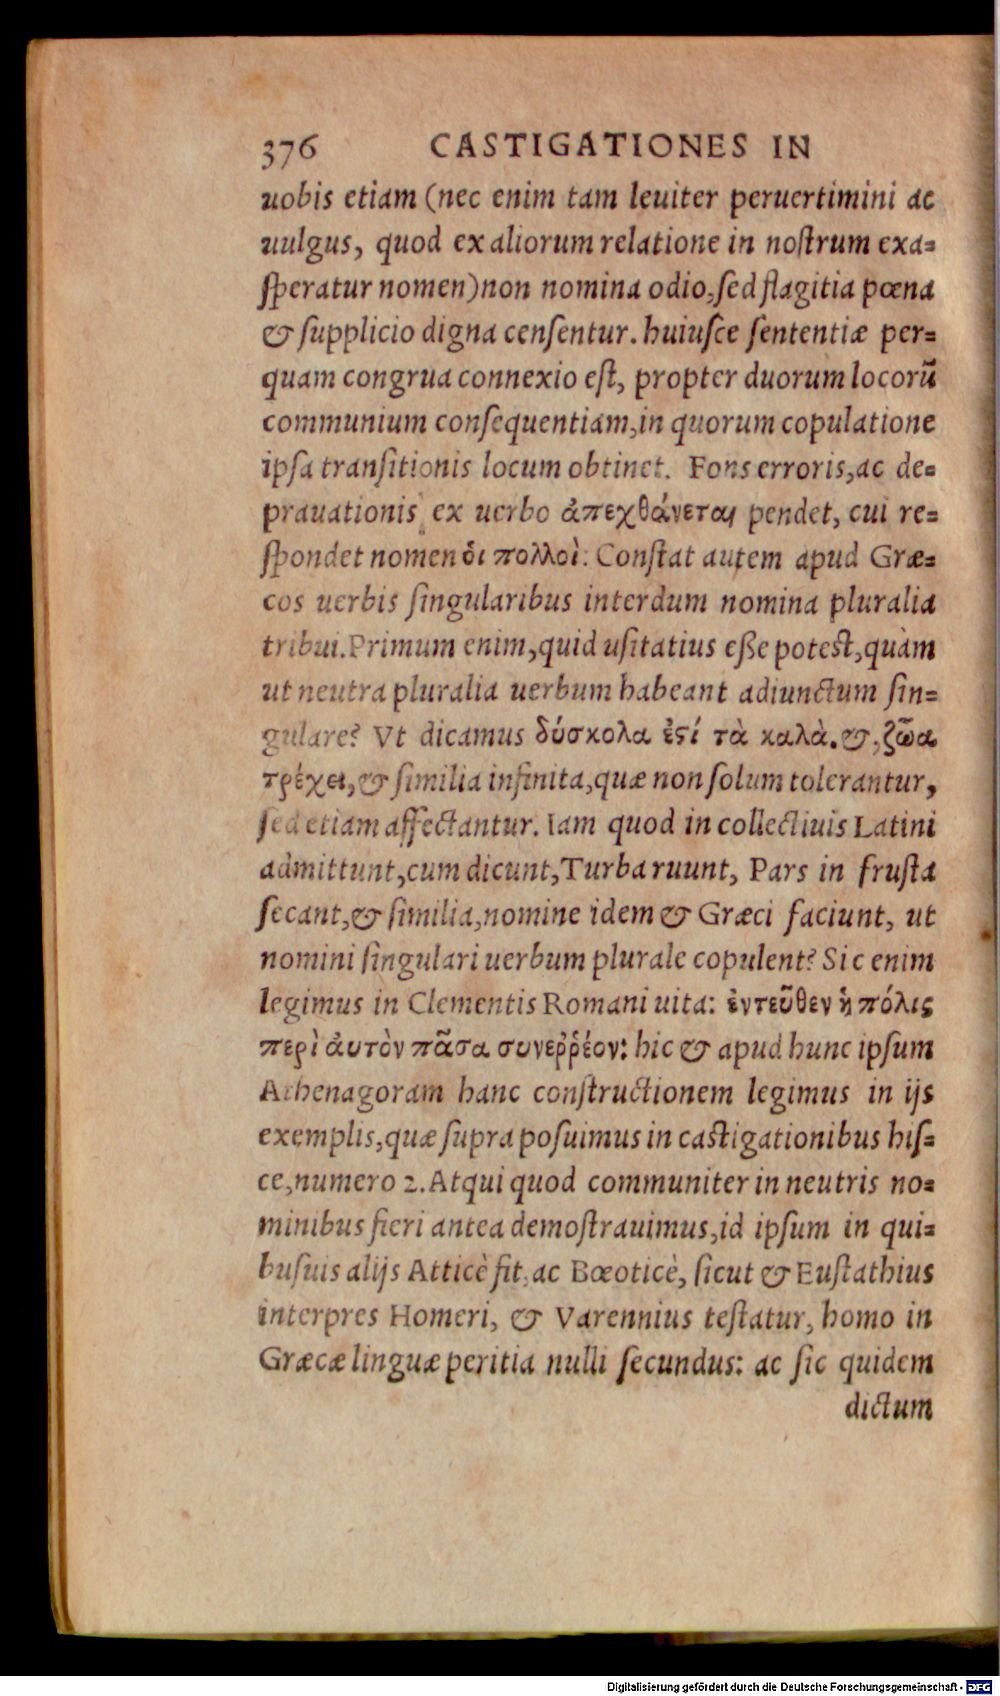 376 CASTIGATIONES IN
uobis etiam (nec enim tam leuiter peruertimini ac
uulgus, quod ex aliorum relatione in nostrum exa=
speratur nomen) non nomina odio, sed flagitia pœna
& supplicio digna censentur. huiusce sententiæ per=
quam congrua connexio est, propter duorum locorũ
communium consequentiam, in quorum copulatione
ipsa transitionis locum obtinet. Fons erroris, ac de=
prauationis ex uerbo ἀπεχθάνεται pendet, cui re=
spondet nomen ὁι πολλοὶ: Constat autem apud Græ=
cos uerbis singularibus interdum nomina pluralia
tribui. Primum enim, quid usitatius eße potest, quàm
ut neutra pluralia uerbum habeant adiunctum sin=
gulare? Vt dicamus δύσκολα ἐϛί τὰ καλὰ. &, ζῶα
τρέχει, & similia infinita, quæ non solum tolerantur,
sed etiam affectantur. Iam quod in collectiuis Latini
admittunt, cum dicunt, Turba ruunt, Pars in frusta
secant, & similia, nomine idem & Græci faciunt, ut
nomini singulari uerbum plurale copulent? Sic enim
legimus in Clementis Romani uita: ἐντεῦθεν ἡ πόλις
περὶ ἀυτὸν πᾶσα συνεῤῥέον: hic & apud hunc ipsum
Athenagoram hanc constructionem legimus in ijs
exemplis, quæ supra posuimus in castigationibus his=
ce, numero 2. Atqui quod communiter in neutris no=
minibus fieri antea demostrauimus, id ipsum in qui=
busuis alijs Atticè fit, ac Bœoticè, sicut & Eustathius
interpres Homeri, & Varennius testatur, homo in
Græcæ linguæ peritia nulli secundus: ac sic quidem
dictum
Digitalisierung gefördert durch die Deutsche Forschungsgemeinschaft - DFG